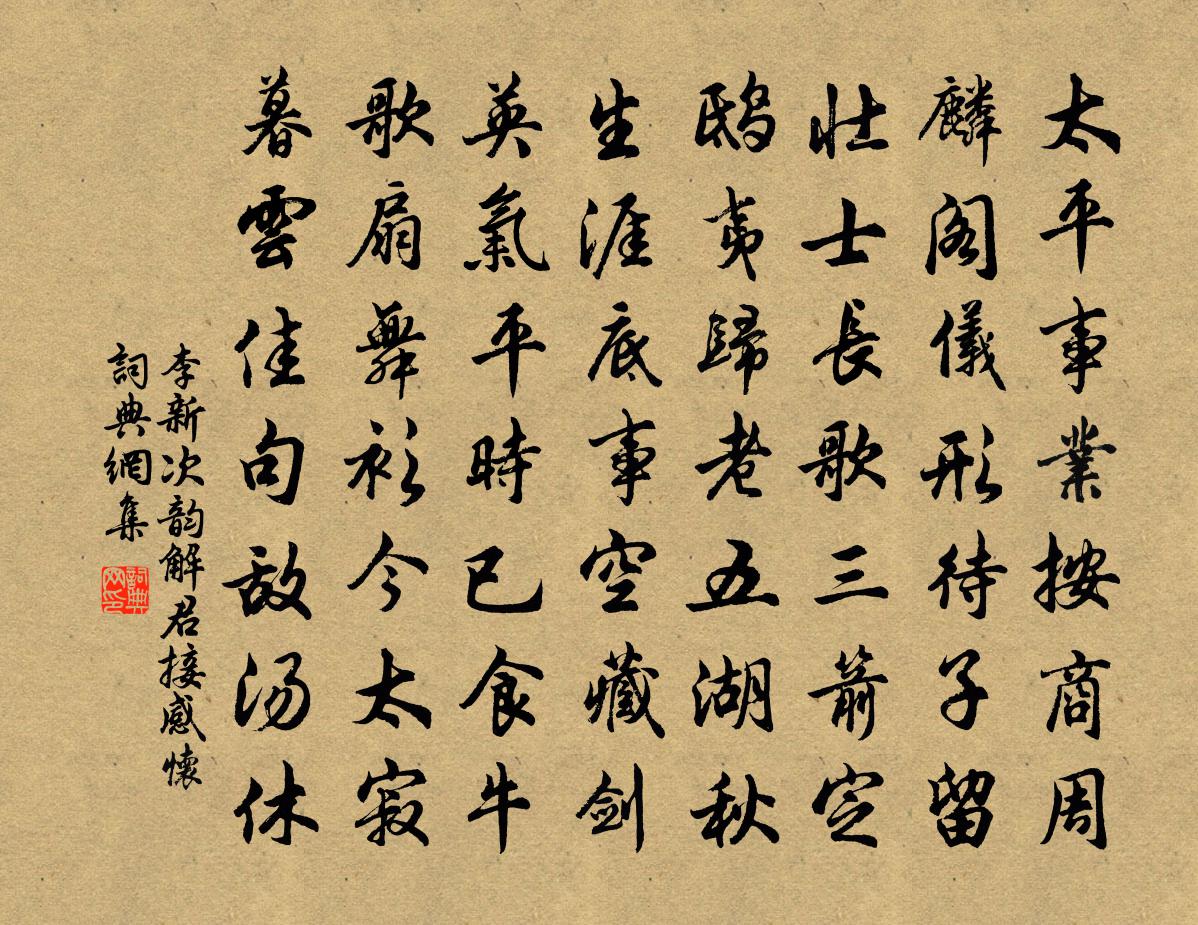 太平事業按商周
麟閣儀形待子留
壯士長歌三箭定
鴟夷歸老五湖秋
生涯底事空藏劍
英氣平時已食牛
歌扇舞衫今太寂
暮雲佳句敌湯休
李新次韵解君接感懷
詞典網集
詞典网印